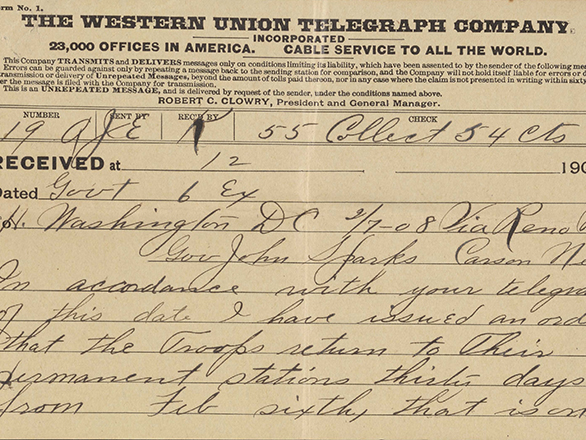 orm No. 1.
THE WESTERN UNION TELEGRAPH COMPANY
INCORPORATED
23,000 OFFICES IN AMERICA. CABLE SERVICE TO ALL THE WORLD.
This Company TRANSMITS and DELIVERS messages only on conditions limiting its liability, which have been assented to by the sender of the following mes
Errors can be guarded against only by repeating a message back to the sending station for comparison, and the Company will not hold itself liable for errors or d
transmission or delivery of Unrepeated Messages, beyond the amount of tolls paid thereon, nor in any case where the claim is not presented in writing within sixty
er the message is filed with the Company for transmission.
This is an UNREPEATED MESSAGE, and is delivered by request of the sender, under the conditions named above.
ROBERT C. CLOWRY, President and General Manager.
NUMBER SENT BY REC'D BY CHECK
19 55 Collect 54 cts
RECEIVED at 12 190
Dated Govt 6 Ex
Washington DC 2/7-08 Via Reno
Gov John Sparks Carson Ne
In accordance with your telegra
of this date I have issued an ord
that the Troops return to Their
permanent stations thirty days
from Feb sixth, that is on